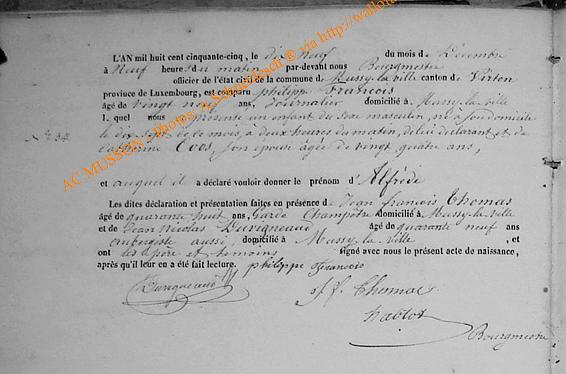 L'AN mil huit cent cinquante-cinq, le dix neuf du mois de Décembre
à Neuf heure du matin par-devant nous Bourgmestre
officier de l'état civil de la commune de Mussy-la-ville canton de Virton
province de Luxembourg, est comparu philippe François
âgé de vingt neuf ans, Journalier domicilié à Mussy-la-ville
l quel nous présente un enfant du sexe masculin, né à son domicile
le dix sept de ce mois, à deux heures du matin, de lui déclarant et de
Catherine Eves, son épouse âgée de vingt quatre ans,
et auquel il a déclaré vouloir donner le prénom d'Alfrède
Les dites déclaration et présentation faites en présence de Jean françois Thomas
âgé de quarante huit ans, Garde Champêtre domicilié à Mussy-la-ville
et de Jean Nicolas Duvigneaud âgé de quarante neuf ans
aubergiste aussi domicilié à Mussy-la-ville , et
ont les père et temoins signé avec nous le présent acte de naissance,
après qu'il leur en a été fait lecture. philippe François
Duvigneaud J. f. Thomas
Bourgmestre
AC MUSSON - Photos © via http://wallo